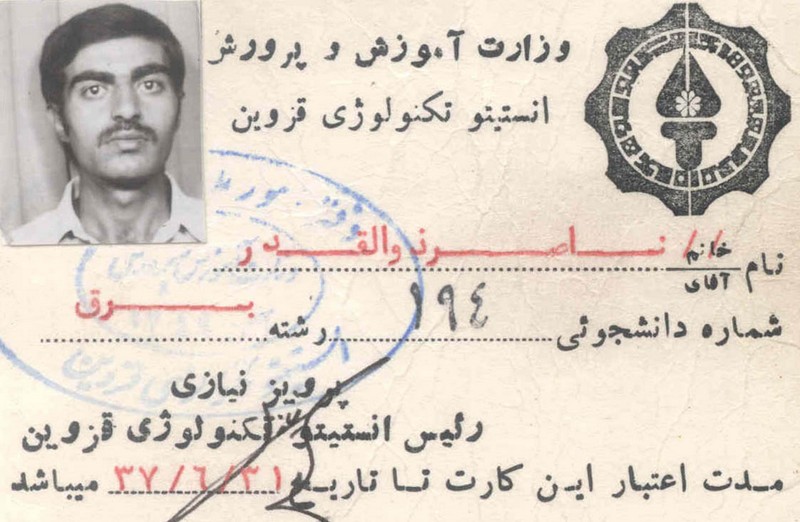 وزارت آموزش و پرورش
انستیتو تکنولوژی قزوین
نام خانم آقای ناصر ذوالقدر
شماره دانشجوئی ۱۹۴ رشته برق
پرویز نیازی
رئیس انستیتو تکنولوژی قزوین
مدت اعتبار این کارت تا تاریخ ۳۷/۶/۳۱ میباشد